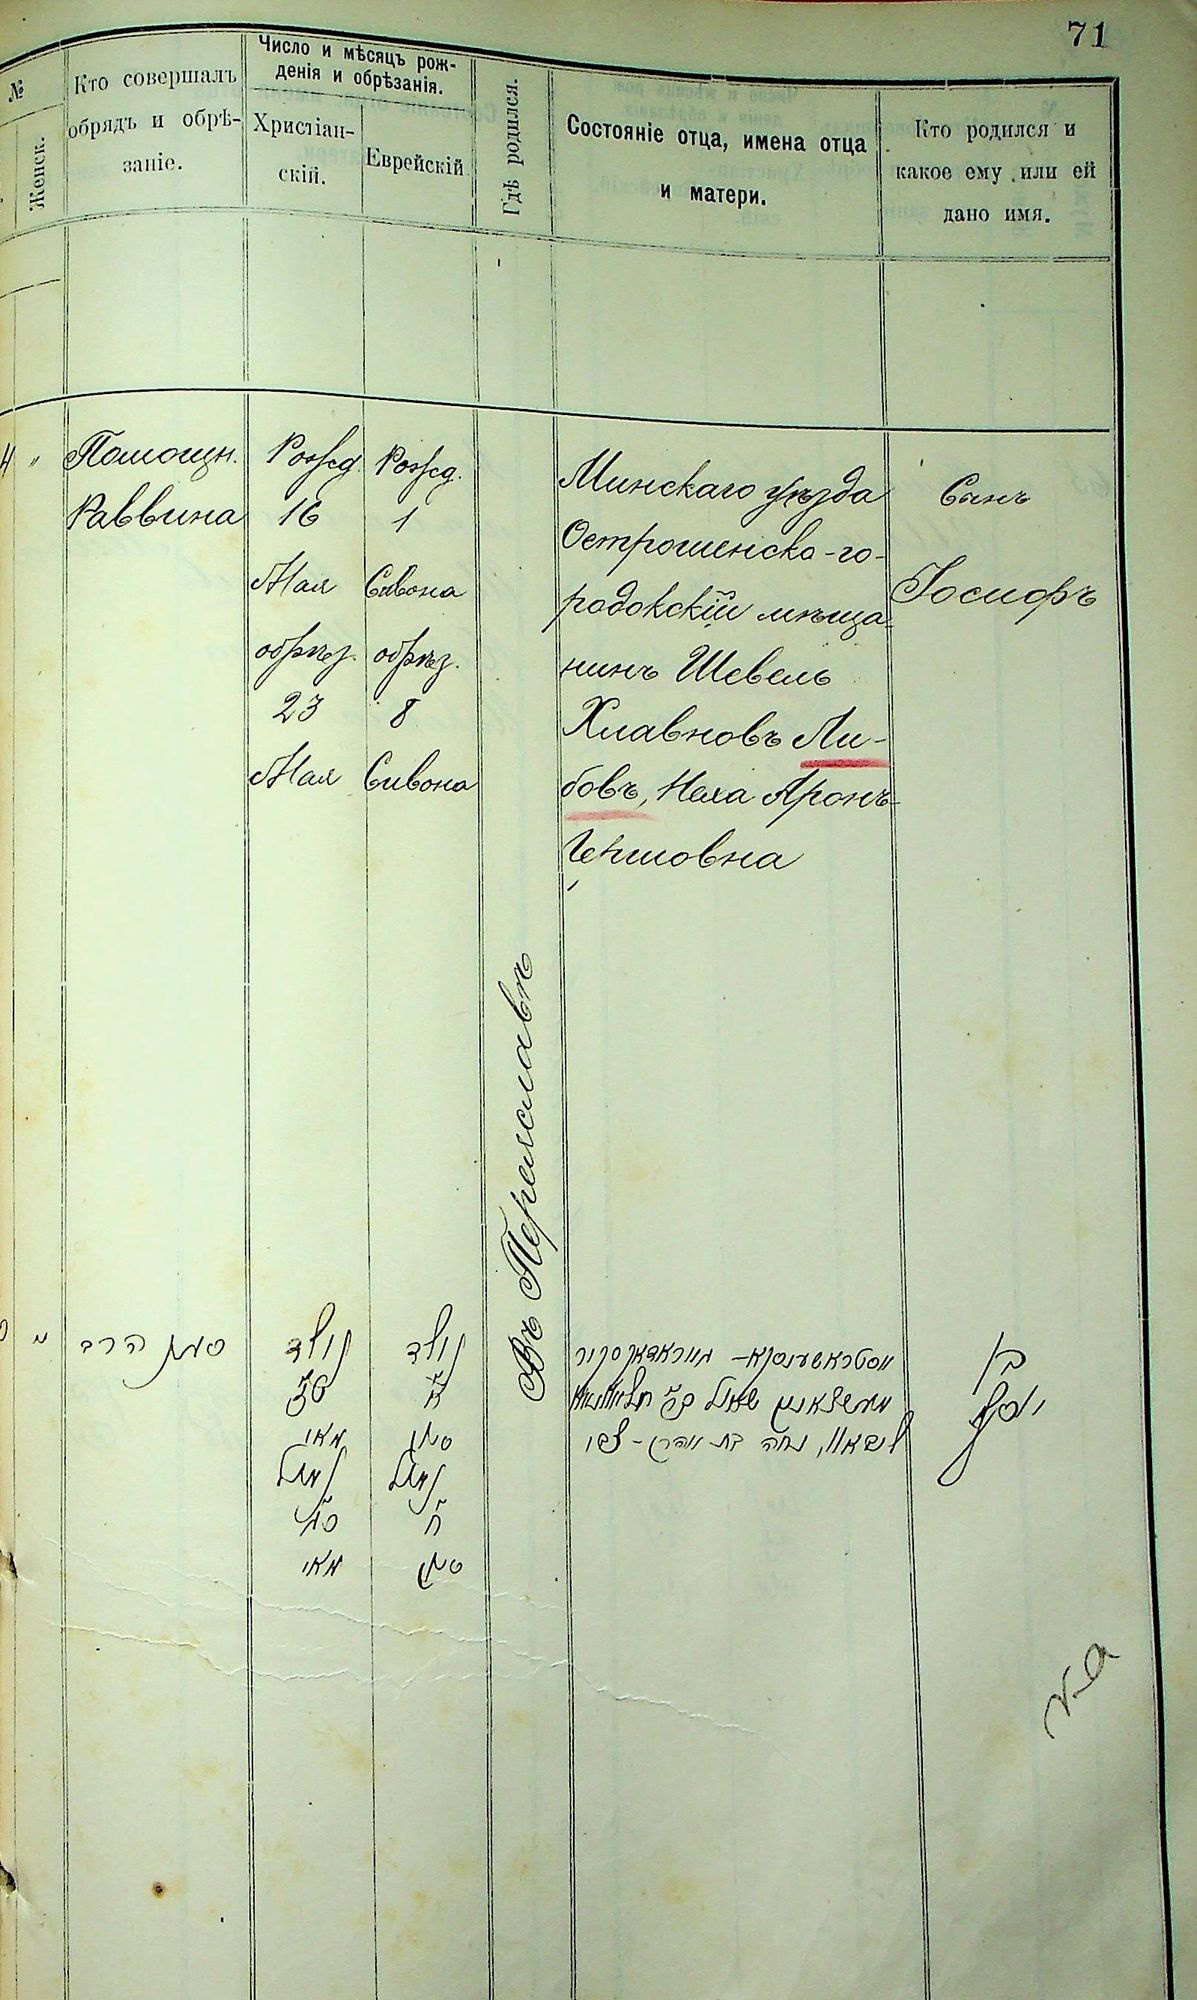 71
№
Женск.
Кто совершалъ
обрядъ и обрѣ-
заніе.
Число и мѣсяцъ рож-
денія и обрѣзанія.
Христіан-
скій.
Еврейскій
Гдѣ родился.
Состояніе отца, имена отца
и матери.
Кто родился и
какое ему или ей
дано имя.
Помощн.
Раввина
Рожд.
16
Мая
обрѣз.
23
Мая
Рожд.
1
Сивона
обрѣз.
8
Сивона
Въ Переяславѣ
Минскаго уѣзда
Острошенско-го-
родокскій мѣща-
нинъ Шевель
Хлавновъ Ли-
бовъ, Неха Аронъ-
Гершовна
Сынъ
Іосифъ
הרב
נולד
טז
מאי
נמול
כג
מאי
נולד
א
סיון
נמול
ח
סיון
בן
יוסף